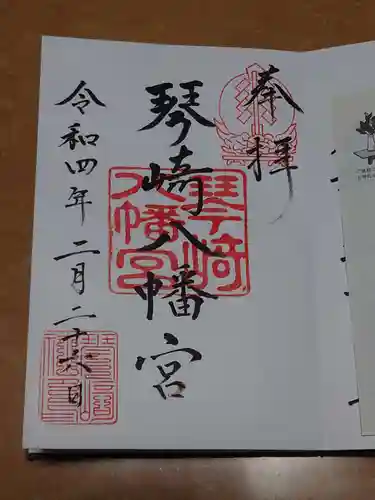 奉拝
琴崎八幡宮
琴崎
八幡宮
令和四年二月二十六日